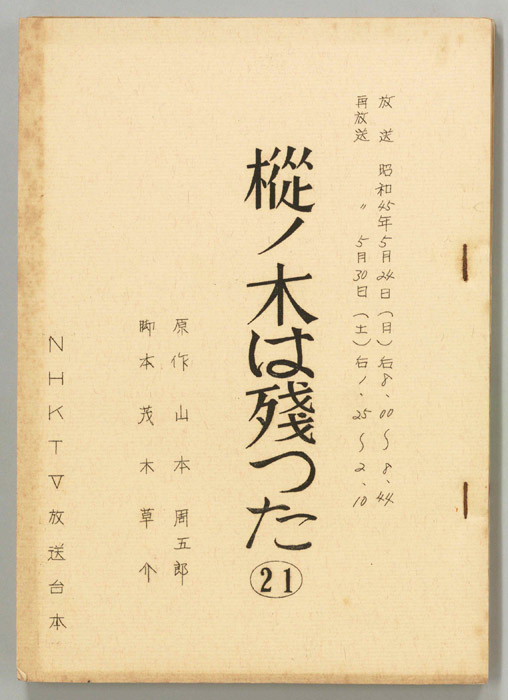 放送　昭和45年5月24日（日）后8、00〜8、44
再放送　〃　5月30日（土）后1、25〜2、10
樅ノ木は残つた
21
原作　山本周五郎
脚本　茂木草介
NHKTV放送台本